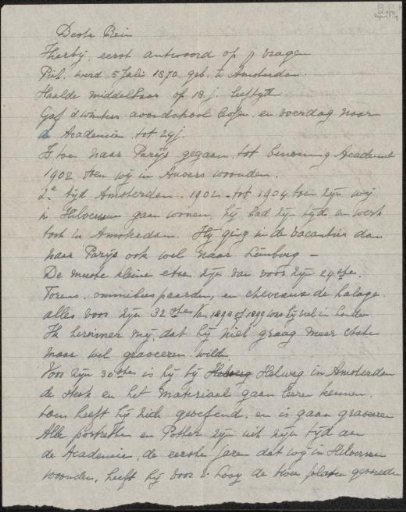 Beste Bein
Hierbij, eerst antwoord op je vragen
Phil. werd 5 Juli 1870 geb. te Amsterdam
Haalde middelbaar op 18 j. leeftijd
Gaf d'winters avondschool en overdag naar
de Academie tot 24j.
Is toen naar Parijs gegaan tot benoeming Academie
1902 toen wij in Anvers woonden.
2e tijd Amsterdam. 1902 tot 1904 toen zijn wij
in Hilversum gaan wonen, hij had zijn tijd en werk
toch in Amsterdam. Hij ging in de vacanties dan
naar Parijs ook wel naar Limburg –
De meeste kleine etsen zijn van voor zijn 24ste.
Torens, omnibuspaarden, en chevaux de halage
alles voor zijn 32ste in 1898 of 1899 was hij wel in Londen
Ik herinner mij, dat hij niet graag meer etste
maar wel graveeren wilde.
Voor zijn 30ste is hij bij Helweg in Amsterdam
de druk en het materiaal gaan leeren kennen.
toen heeft hij zich geoefend, en is gaan graveeren
Alle portretten en Potter zijn uit zijn tijd aan
de Academie, de eerste jaren dat wij in Hilversum
woonden, heeft hij voor v. Looy de twee platen gesneden